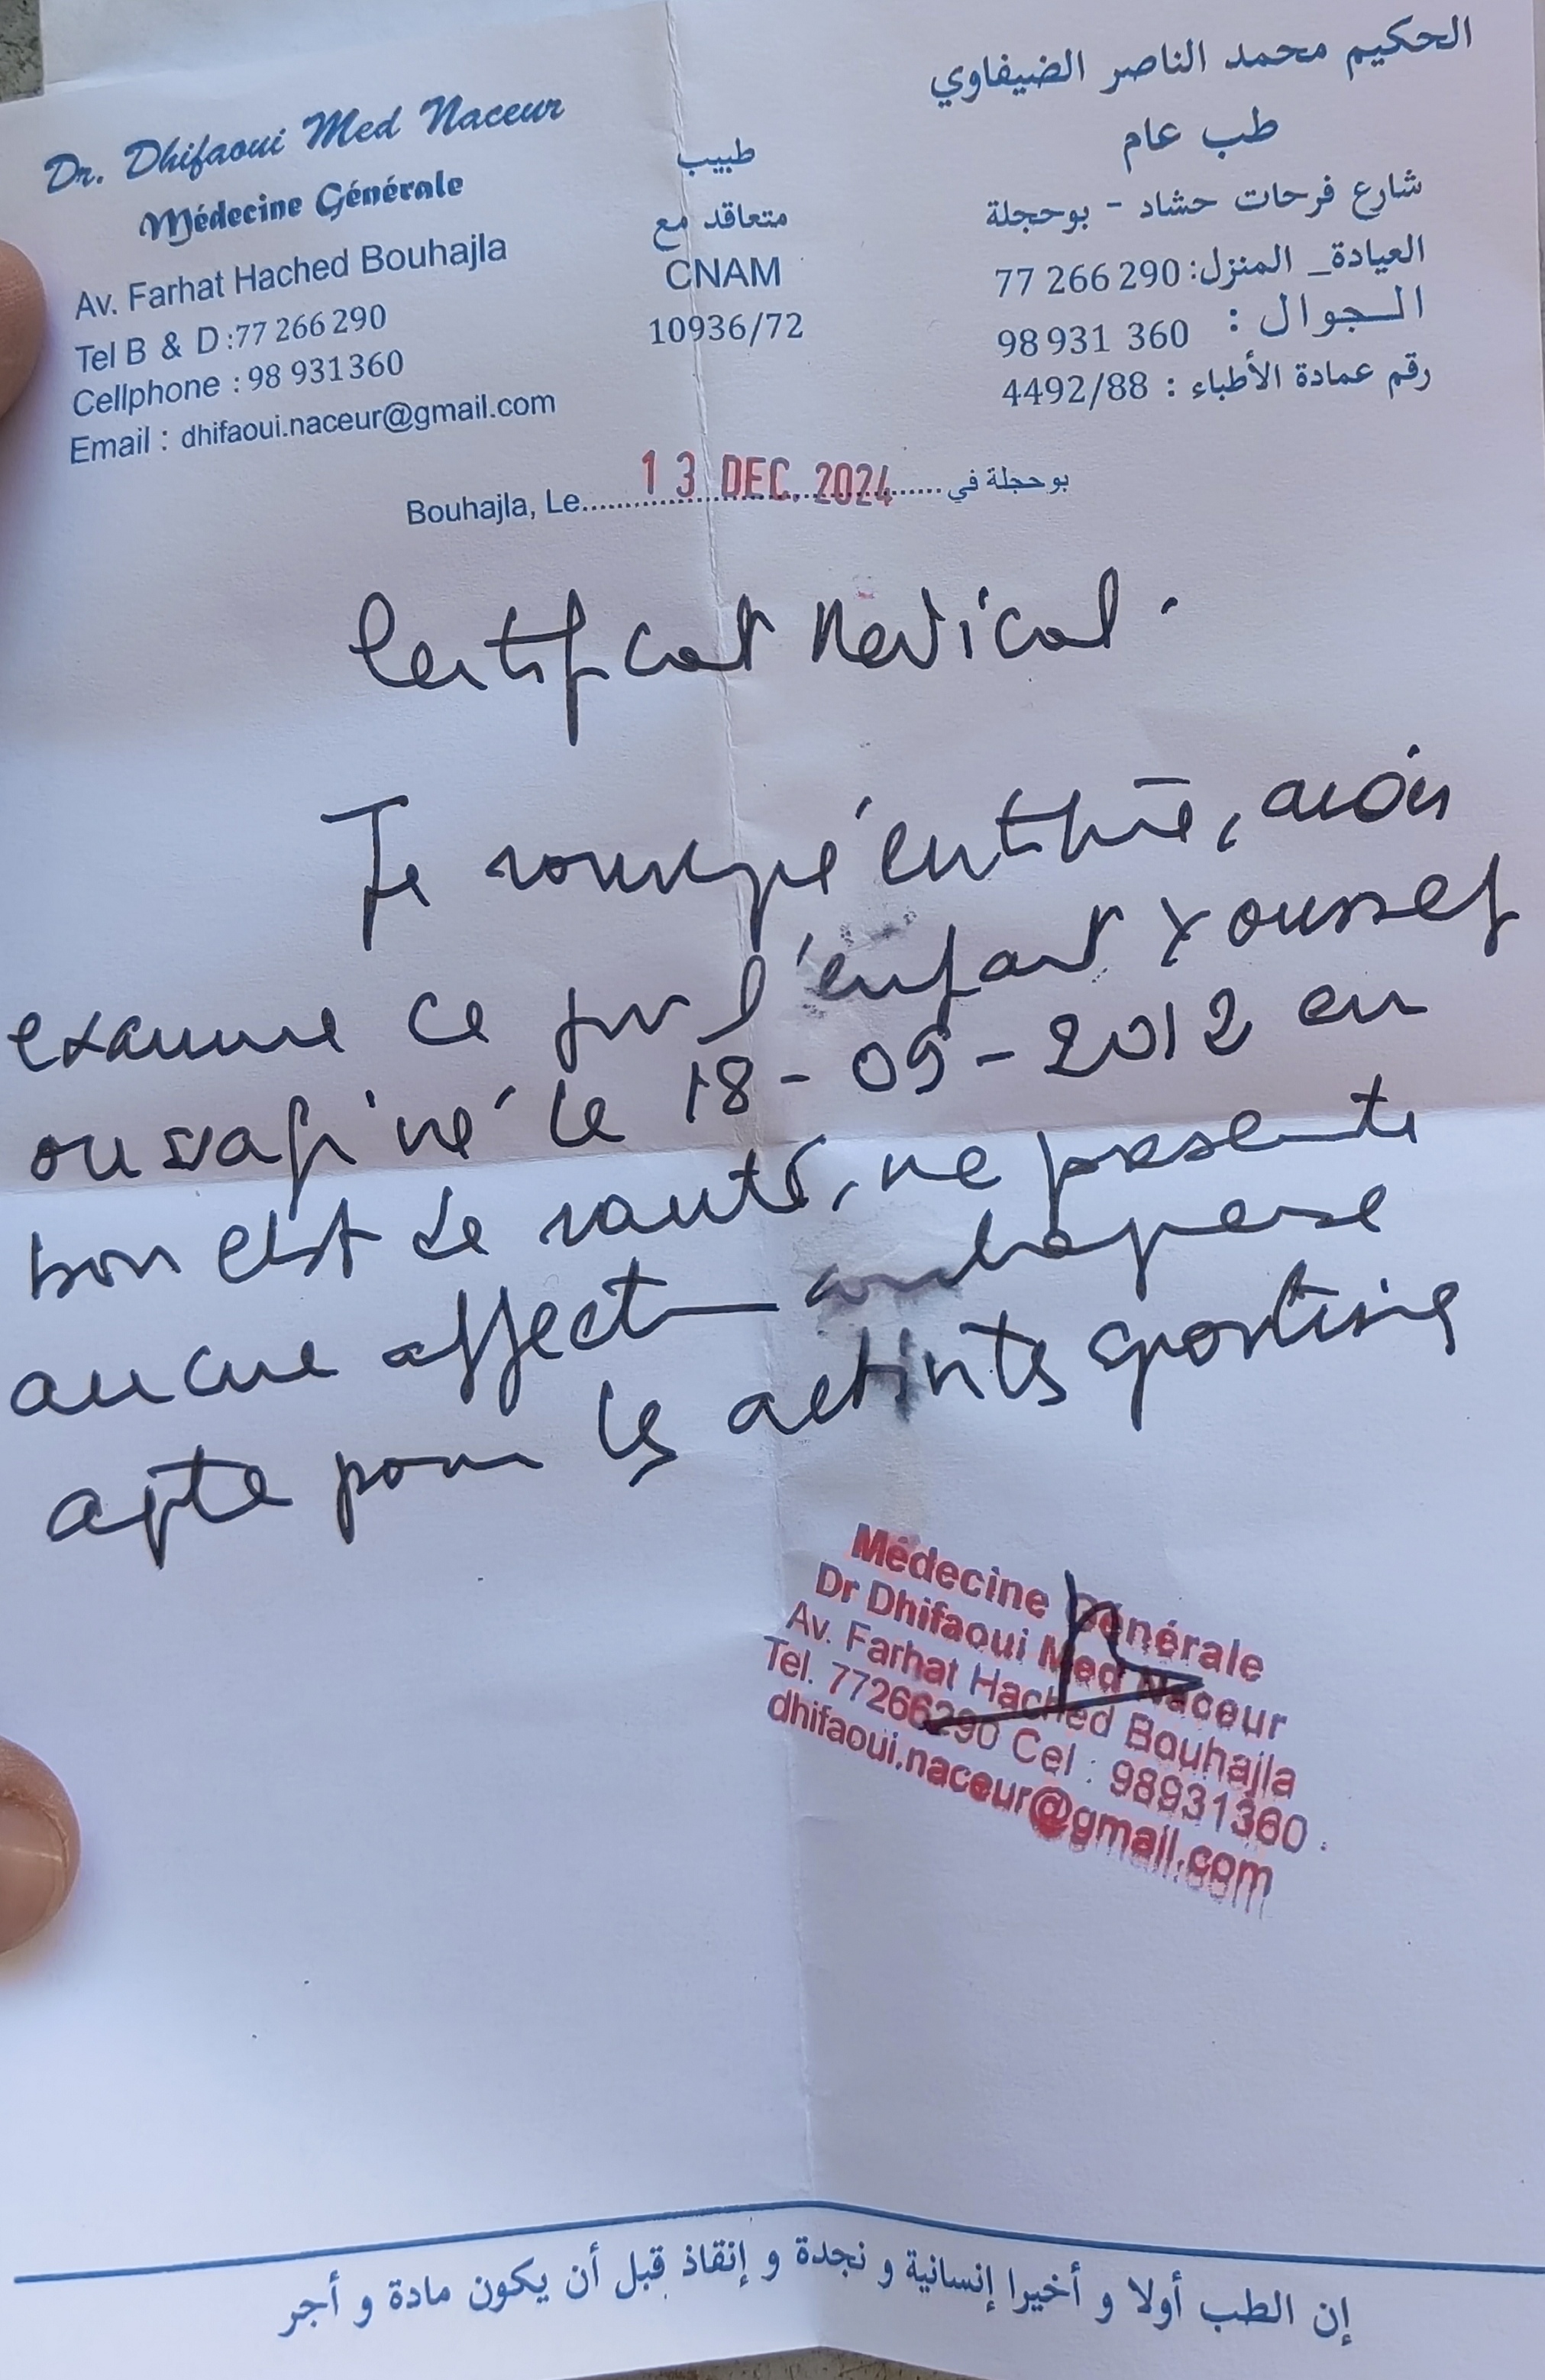 Dr. Dhifaoui Med Naceur
Médecine Générale
Av. Farhat Hached Bouhajla
Tel B & D :77 266 290
Cellphone : 98 931360
Email : dhifaoui.naceur@gmail.com
طبيب
متعاقد مع
CNAM
10936/72
الحكيم محمد الناصر الضيفاوي
طب عام
شارع فرحات حشاد - بوحجلة
العيادة_ المنزل: 77 266 290
الـجوال : 98 931 360
رقم عمادة الأطباء : 4492/88
Bouhajla, Le 13 DEC. 2024 بوحجلة في
Certificat Medical.
Je soussigné certifie, avoir
examiné ce jour l'enfant Youssef
né le 18-09-2012 en
bon état de santé, ne présente
aucune affection contagieuse
apte pour les activités sportives
Médecine Générale
Dr Dhifaoui Med Naceur
Av. Farhat Hached Bouhajla
Tel. 77266290 Cel : 98931360
dhifaoui.naceur@gmail.com
إن الطب أولا و أخيرا إنسانية و نجدة و إنقاذ قبل أن يكون مادة و أجر